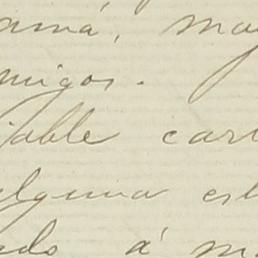 amá, ma
migos.
iable car
alguna es
ado á m